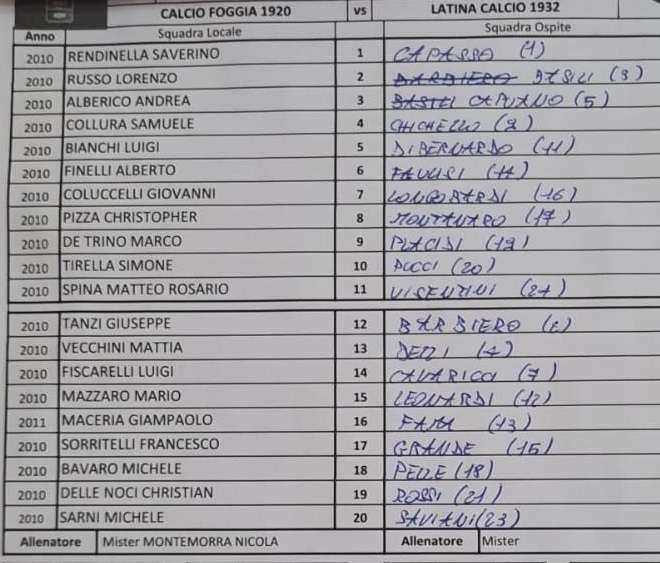 CALCIO FOGGIA 1920 vs LATINA CALCIO 1932
Anno Squadra Locale Squadra Ospite
2010 RENDINELLA SAVERINO 1 CAPASSO (1)
2010 RUSSO LORENZO 2 BARBIERO BASILI (3)
2010 ALBERICO ANDREA 3 BASILI CAPUANO (5)
2010 COLLURA SAMUELE 4 CHICHELLO (2)
2010 BIANCHI LUIGI 5 DIBERNARDO (11)
2010 FINELLI ALBERTO 6 (14)
2010 COLUCCELLI GIOVANNI 7 LONGOBARDI (16)
2010 PIZZA CHRISTOPHER 8 MONTANARO (17)
2010 DE TRINO MARCO 9 PLACIDI (19)
2010 TIRELLA SIMONE 10 PUCCI (20)
2010 SPINA MATTEO ROSARIO 11 VISENTINI (24)
2010 TANZI GIUSEPPE 12 BARBIERO (6)
2010 VECCHINI MATTIA 13 (4)
2010 FISCARELLI LUIGI 14 CAVARICCI (7)
2010 MAZZARO MARIO 15 LEONARDI (12)
2011 MACERIA GIAMPAOLO 16 (13)
2010 SORRITELLI FRANCESCO 17 GRANDE (15)
2010 BAVARO MICHELE 18 PELLE (18)
2010 DELLE NOCI CHRISTIAN 19 ROSSI (21)
2010 SARNI MICHELE 20 SAVIANI (23)
Allenatore Mister MONTEMORRA NICOLA Allenatore Mister